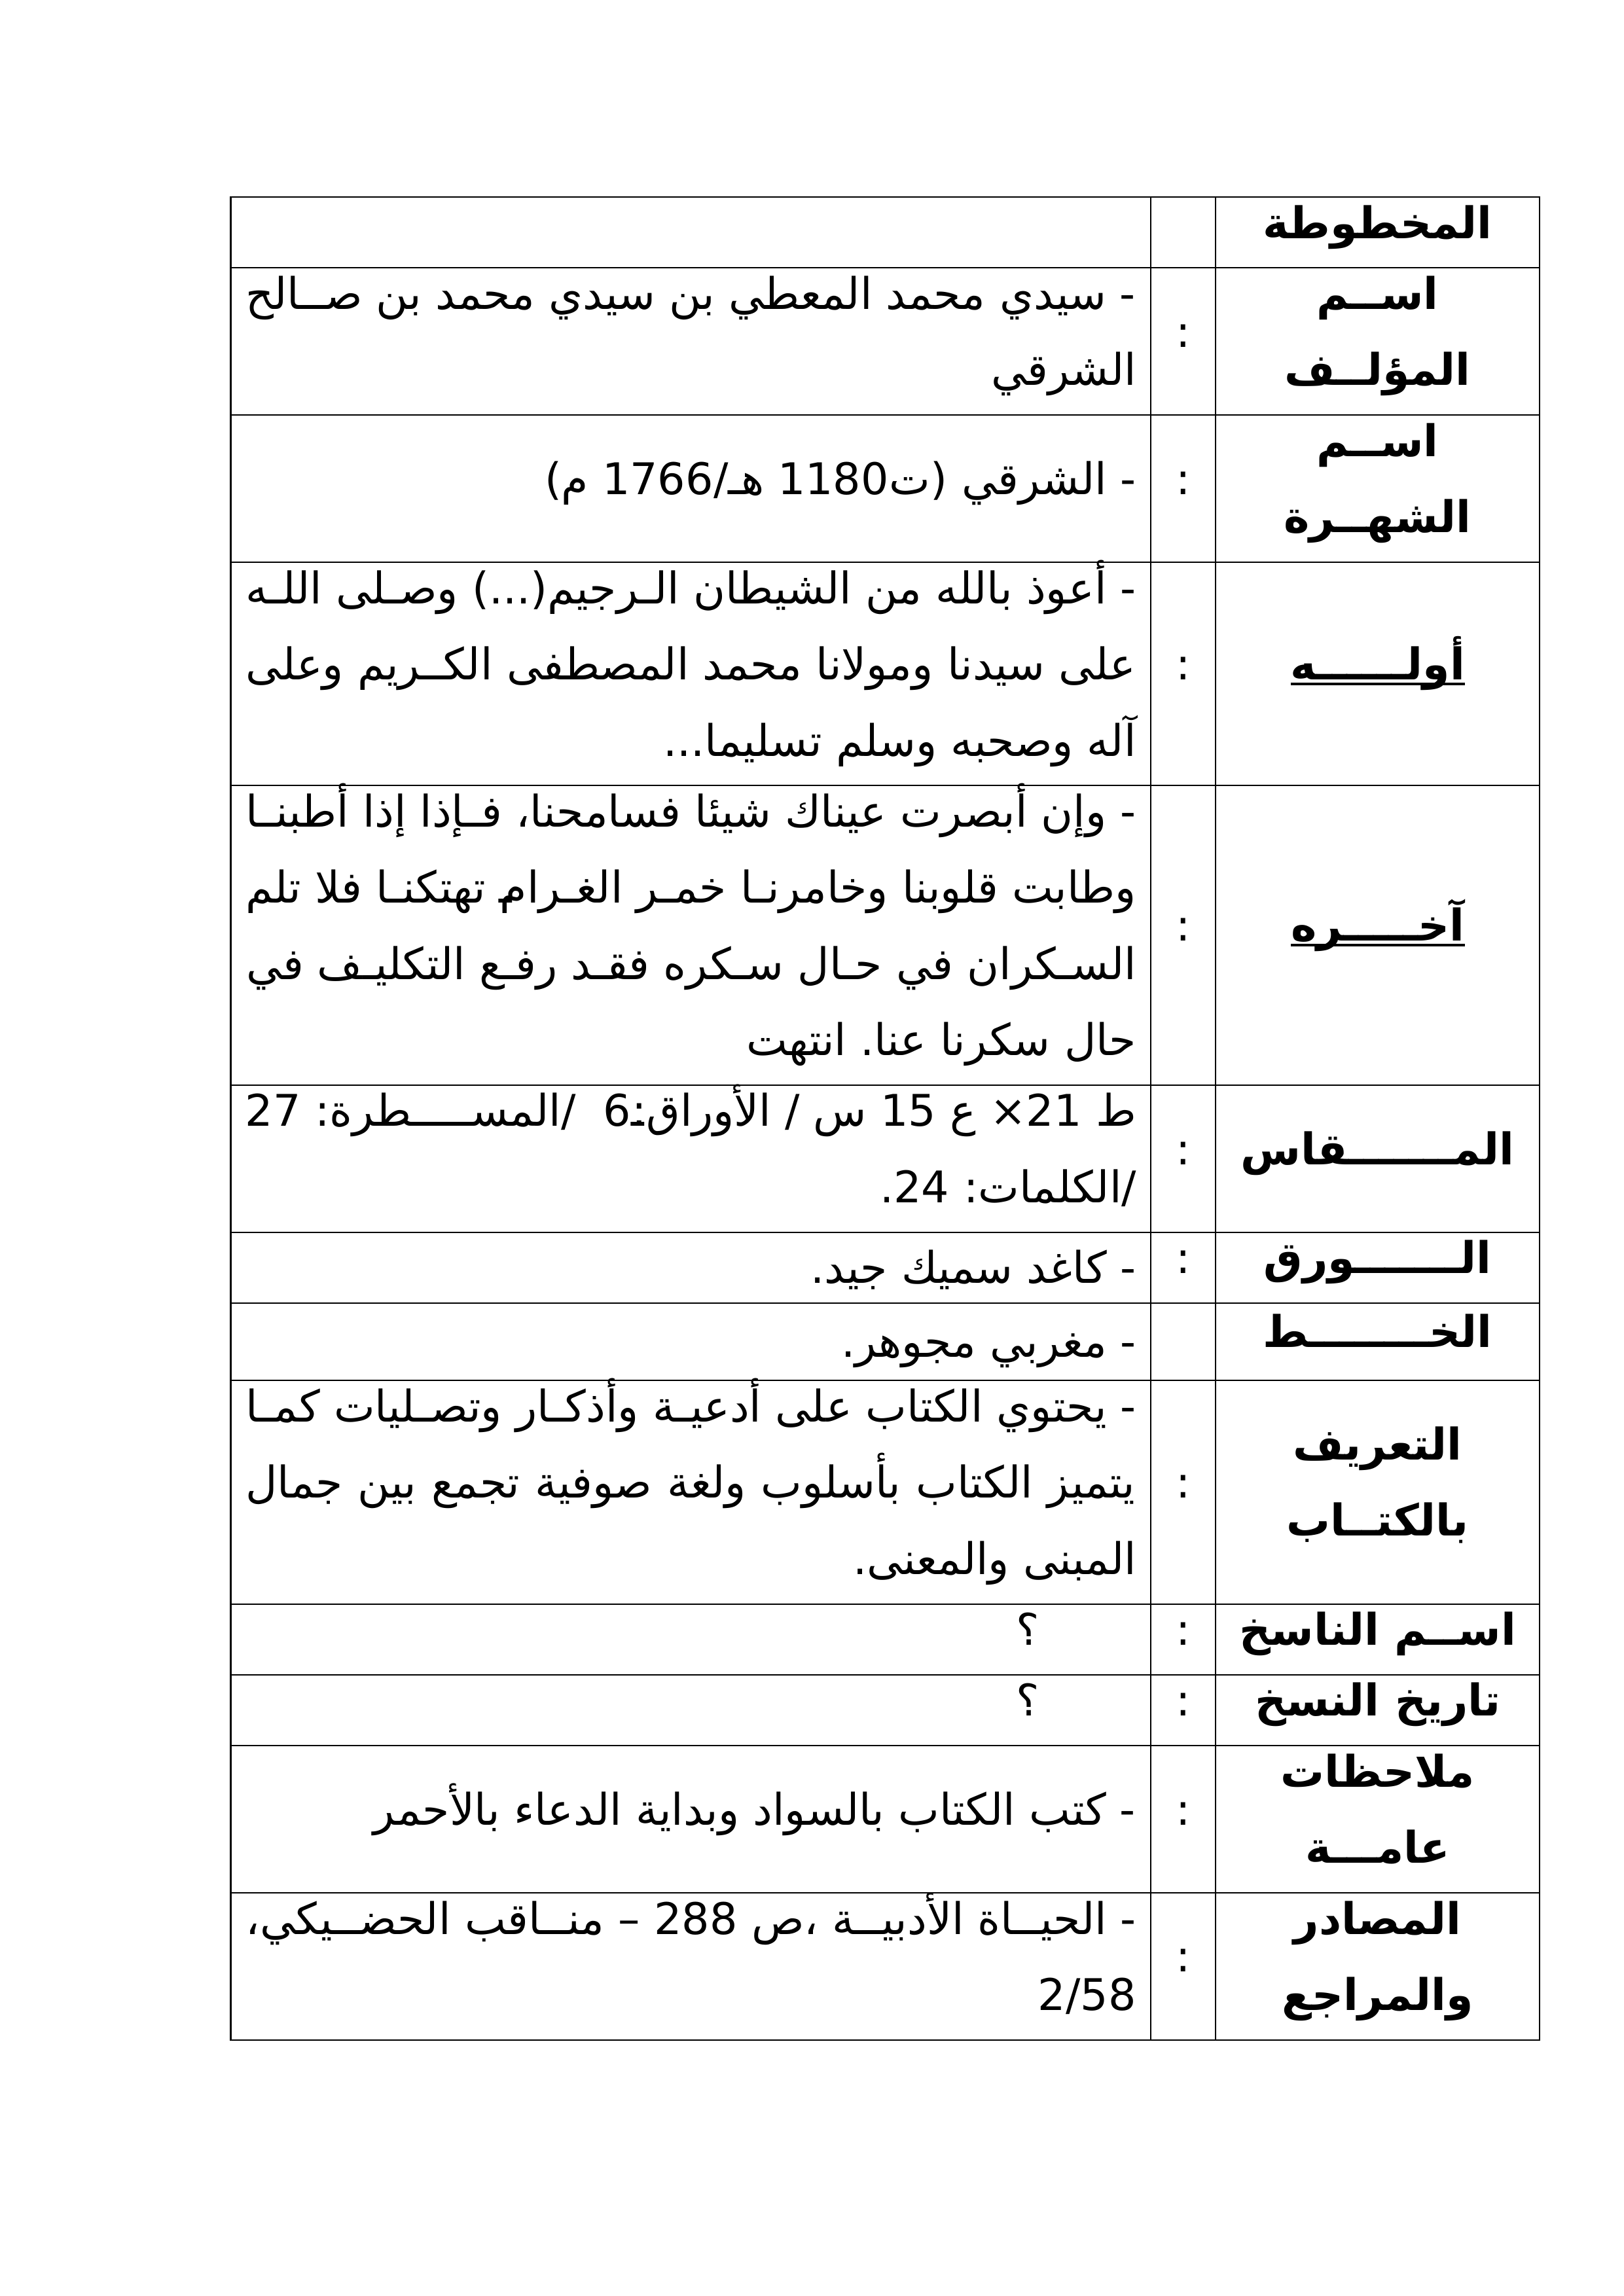 المخطوطة
اســم : - سيدي محمد المعطي بن سيدي محمد بن صــالح
المؤلــف الشرقي
اســم
الشهــرة : - الشرقي (ت1180 هـ/1766 م)
- أعوذ بالله من الشيطان الـرجيم(...) وصـلى اللـه
أولــــــه : على سيدنا ومولانا محمد المصطفى الكــريم وعلى
آله وصحبه وسلم تسليما...
- وإن أبصرت عيناك شيئا فسامحنا، فـإذا إذا أطبنـا
وطابت قلوبنا وخامرنـا خمـر الغـرام تهتكنـا فلا تلم
آخـــــره : السـكران في حـال سـكره فقـد رفـع التكليـف في
حال سكرنا عنا. انتهت
المـــــــقاس : ط 21× ع 15 س / الأوراق:ـ6 /المســـــطرة: 27
/الكلمات: 24.
الـــــــورق : - كاغد سميك جيد.
الخــــــــط - مغربي مجوهر.
- يحتوي الكتاب على أدعيـة وأذكـار وتصـليات كمـا
التعريف
بالكتــاب : يتميز الكتاب بأسلوب ولغة صوفية تجمع بين جمال
المبنى والمعنى.
اســم الناسخ : ؟
تاريخ النسخ : ؟
ملاحظات
عامـــة : - كتب الكتاب بالسواد وبداية الدعاء بالأحمر
المصادر : - الحيــاة الأدبيــة ،ص 288 – منــاقب الحضــيكي،
والمراجع 2/58